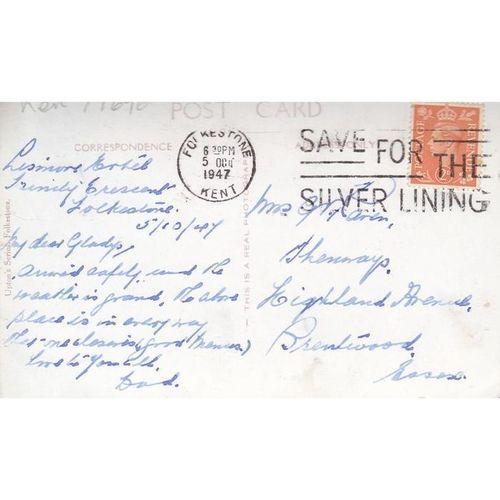 Ken 11676
POST CARD
CORRESPONDENCE
ADDRESS ONLY
FOLKESTONE
6 30PM
5 OCT
1947
KENT
SAVE FOR THE
SILVER LINING
POSTAGE
Lismore Hotel
Trinity Crescent
Folkestone.
5/10/47
My dear Gladys,
Arrived safely, and the
weather is grand. The above
place is in every way
(Good Menus.)
Love to You all.
Dad.
Upton's Series, Folkestone.
THIS IS A REAL PHOTOGRAPH
Mrs
Highland Avenue,
Brentwood,
Essex.